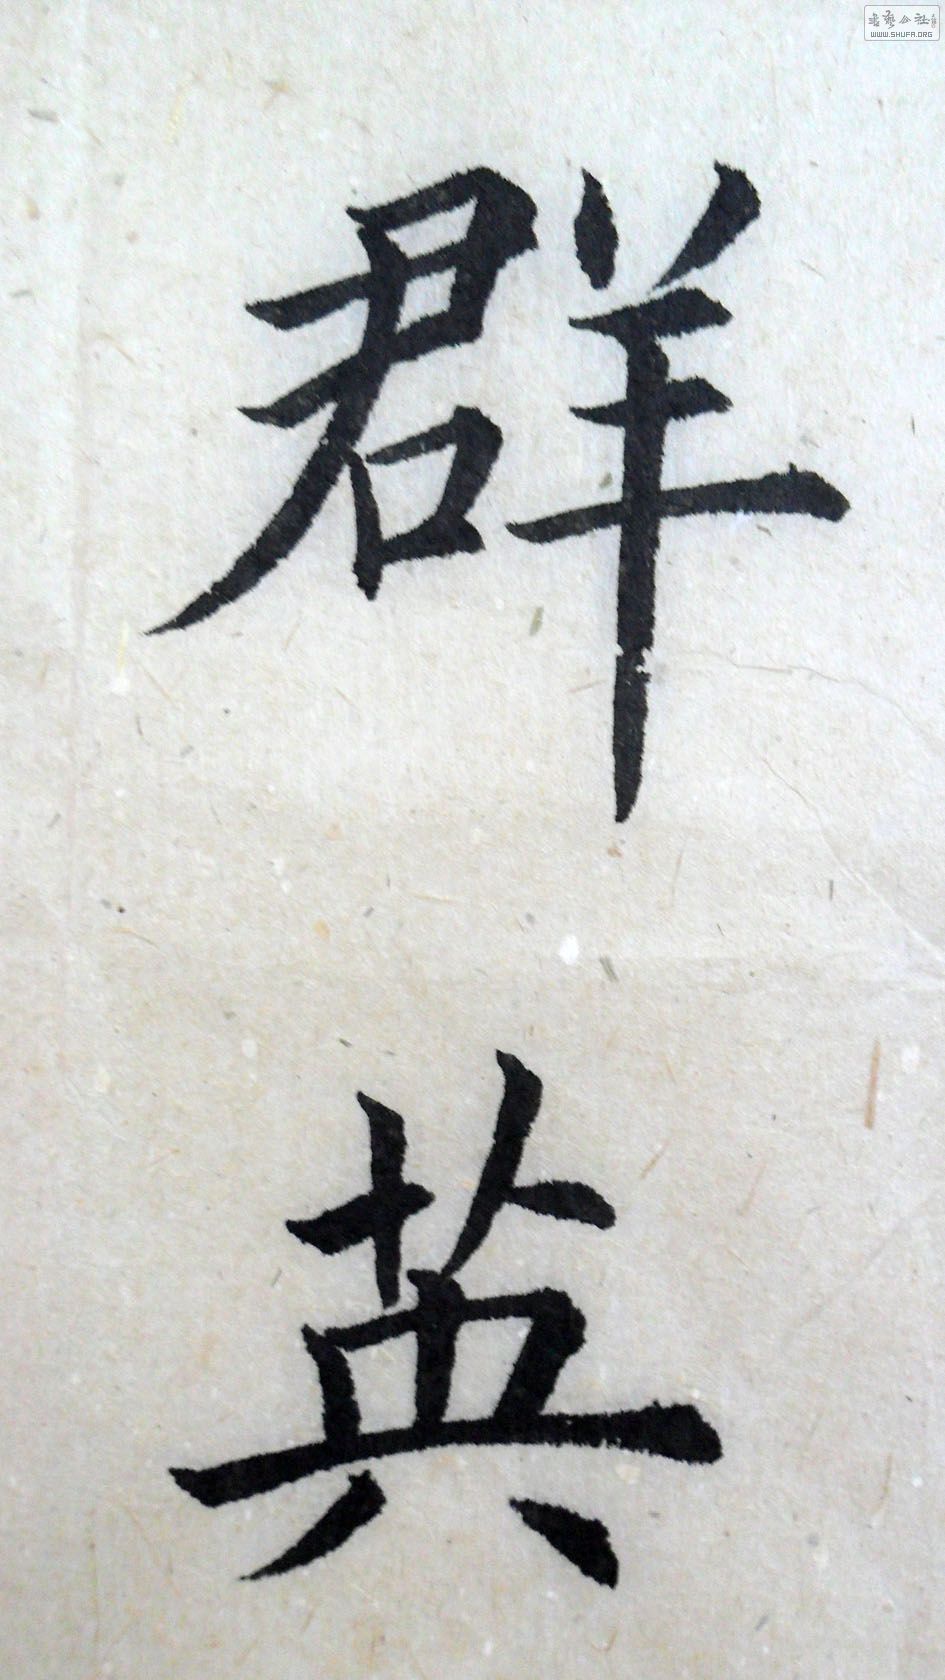 群英
书艺公社
WWW.SHUFA.ORG